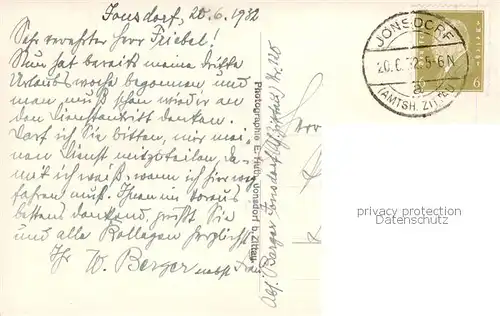 Jonsdorf, 20.6.1932
Sehr verehrter Herr Triebel!
Nun hat bereits meine dritte
Urlaubswoche begonnen und
man muß schon wieder an
den Dienstantritt denken.
Darf ich Sie bitten, mir mei-
nen Dienst mitzuteilen, da-
mit ich weiß, wann ich hier weg
fahren muß. Ihnen im voraus
bestens dankend, grüßt Sie
und alle Kollegen herzlichst
Ihr W. Berger nebst Frau
Abs. Berger Jonsdorf Nr. 120
Photographie E. Huth Jonsdorf b. Zittau
JONSDORF
20.6.32.5-6N
a
(AMTSH. ZITTAU)
6
privacy protection
Datenschutz